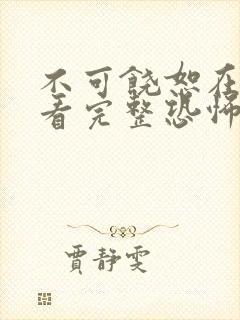 不可饶恕在
看完整恐怖
贾静雯